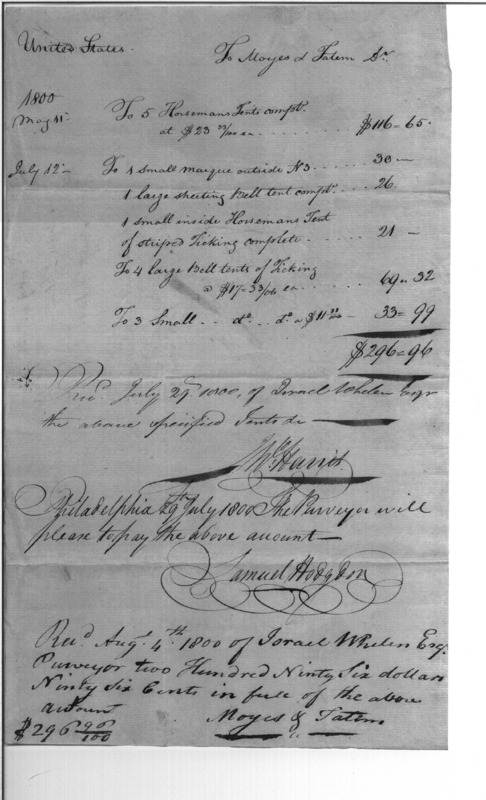 United States.
To Moyes & Tatem Dr.
1800
May 11
To 5 Horsemans Tents complt.
at $23 33/100 ea $116=65.
July 12
To 1 small marque outside N3 30 —
1 large sheeting Bell tent complt. 26
1 small inside Horsemans Tent
of striped Ticking complete 21 —
To 4 large Bell tents of Ticking
a $17=33/00 ea 69=32
To 3 Small .. do .. do a $11 33/100 33=99
$296=96
Recd July 29th 1800, of Israel Whelen Esqr
the above specified Tents &c
Wm. Harris
Philadelphia 29th July 1800 The Purveyor will
please to pay the above amount—
Samuel Hodgdon
Recd. Augt. 4th. 1800 of Israel Whelen Esq.
Purveyor two Hundred Ninty Six dollars
Ninty Six Cents in full of the above
account Moyes & Tatem
$296 96/100